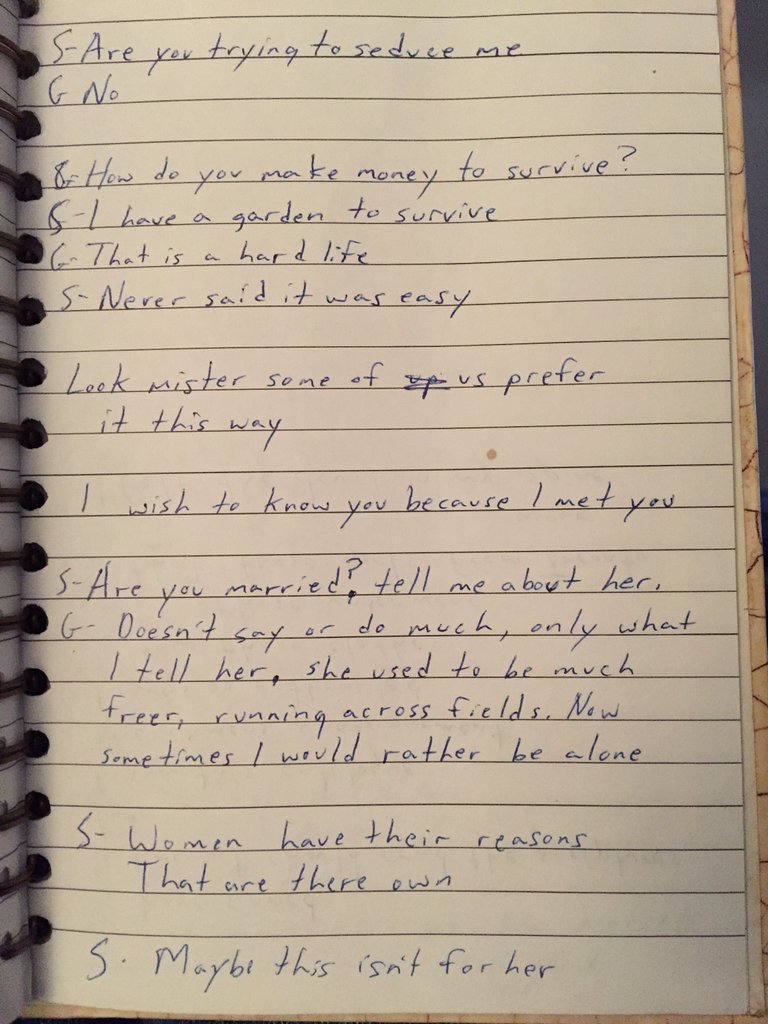 S-Are you trying to seduce me
G No
G-How do you make money to survive?
S-I have a garden to survive
G-That is a hard life
S-Never said it was easy
Look mister some of us prefer
it this way
I wish to know you because I met you
S-Are you married? tell me about her.
G- Doesn't say or do much, only what
I tell her, she used to be much
freer, running across fields. Now
sometimes I would rather be alone
S- Women have their reasons
That are there own
S. Maybe this isn't for her